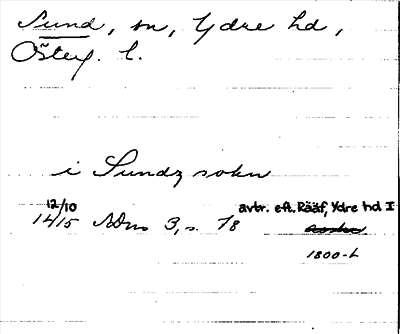 Sund, sn, Ydre hd,
Österg. l.
i Sundz sokn
12/10
1415 NDns 3, s. 78 avtr. eft. Rääf, Ydre hd I
1800-t